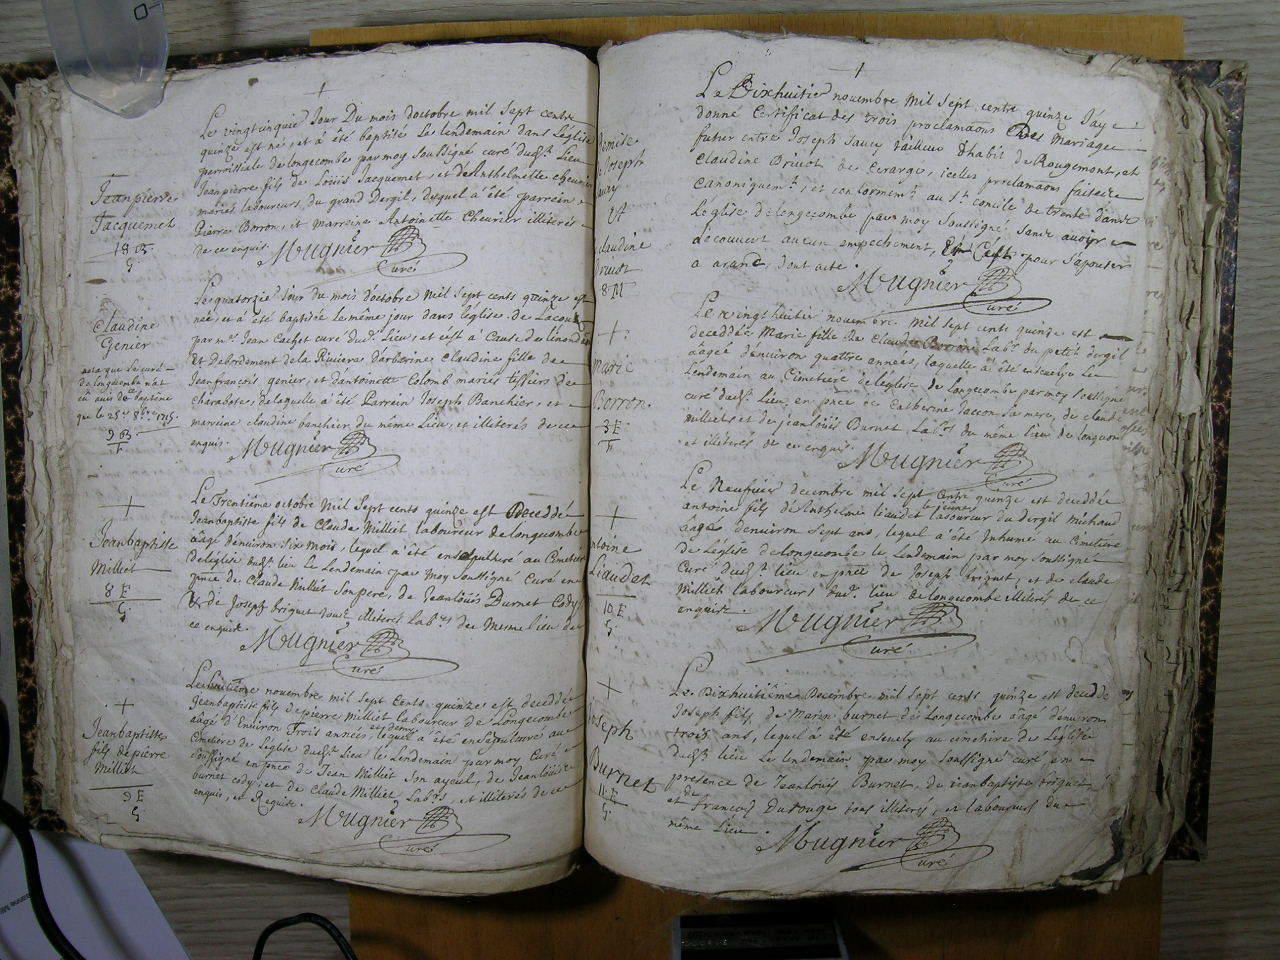 Jeanpierre
Jacquemet
18 B
5
Le vingtcinquie Jour Du mois doctobre mil Sept cents
quinze est né, et a été baptisé Le lendemain dans L'église
parroissiale de longecombe par moy Soussigné curé dud.t Lieu
Jeanpierre fils de Loüis Jacquemet, et d'Anthelmette chevrier
mariés laboureurs du grand Dergil, duquel a été parrein
Pierre Borron, et marreine Antoinette Chevrier illiterés
de ce enquis. Mugnier
Curé
Claudine
Genier
de longecombe n'at
eu avis du baptême
que le 25.e 8.bre 1715.
9 B
F
Le quatorzie Jour du mois d'octobre mil Sept cents quinze est
née, et a été baptisée le même jour dans l'église de Lacoux
par m.r Jean Cachet curé dud.t Lieu, et c'est à Cause de l'inonda
Et debordement de la Riviere Darberine Claudine fille de
Jeanfrancois genier, et d'antoinette Colomb mariés tissiers de
charabote, de laquelle a été Parrein Joseph Banchier, et
marreine claudine banchier du même Lieu, et illiterés de ce
enquis. Mugnier
Curé
Jeanbaptiste
Milliet
8 E
5
Le Trentiême octobre Mil Sept cents quinze est Decedé
Jeanbaptiste fils de Claude Milliet laboureur de longecombe
âgé d'environ Six mois, lequel a été ensepulturé au Cimetiere
de l'église dud.t lieu Le Lendemain par moy Soussigné Curé en
pnce de Claude Milliet Son pere, de Jeanloüis Burnet Cody
& de Joseph briguet tous illiterés Lab.rs du Meme lieu de
ce enquis. Mugnier
Curé
Jeanbaptiste
fils de pierre
Milliet
9 E
5
Le huitiême novembre mil Sept Cents quinze est decedé
Jeanbaptiste fils de pierre Milliet laboureur de Longecombe
âgé d'Environ Trois années et demy lequel a été ensepulturé au
Cimetiere de l'église dud.t Lieu le Lendemain par moy Curé
soussigné en pnce de Jean Milliet Son ayeul, de Jeanloüis
burnet cody, et de Claude Milliet Lab.rs, et illiterés de ce
enquis, et Requis. Mugnier
Curé
Joseph
et
claudine
8 M
Le Dixhuitie novembre mil Sept cents quinze J'ay
donné Certificat des trois proclamaons Des Mariage
futur entre Joseph Saucy tailleur D'habit de Rougemont, et
Claudine Brivot de Evarge, icelles proclamaons faites
Canoniquem.t, et conformem.t au S.t concile de trente dans
L'eglise de longecombe par moy Soussigné Sans avoir
découvert aucun empechement, Et Cest pour s'épouser
a arand, dont acte. Mugnier
Curé
Marie
Borron.
3 E
F
Le vingthuitie novembre mil Sept cents quinze est
decedée Marie fille de Claude Borron Lab.r du petit dergil
âgée d'environ quattre années, laquelle a été ensevelie Le
Lendemain au Cimetiere de l'église de longecombe par moy Soussigné
curé dud.t Lieu en pnce de Catherine Jacon Sa mere, de claude
milliet, et de jeanloüis Burnet Lab.rs du même Lieu de longecombe
et illiterés de ce enquis. Mugnier
Curé
Antoine
Liaudet
10 E
5
Le Neufvie decembre mil Sept Cents quinze est decedé
antoine fils d'Anthelme liaudet le jeune laboureur du dergil michaud
âgé d'environ Sept ans, lequel a été Inhumé au Cimetiere
de l'église de longecombe le Lendemain par moy soussigné
Curé dud.t lieu en pnce de Joseph briguet, et de claude
Milliet laboureurs dud.t lieu de longecombe illiterés de ce
enquis. Mugnier
Curé
Joseph
Burnet
11 E
5
Le Dixhuitiême Decembre mil Sept cents quinze est decedé
Joseph fils de Marin burnet de Longecombe âgé d'environ
trois ans, lequel a été ensevely au cimetiere de L'église
dud.t lieu Le Lendemain par moy soussigné curé, en
presence de Jeanloüis Burnet, de jeanbaptiste briguet,
et de francois Durouge tous illiterés, et laboureurs du
même Lieu. Mugnier
Curé